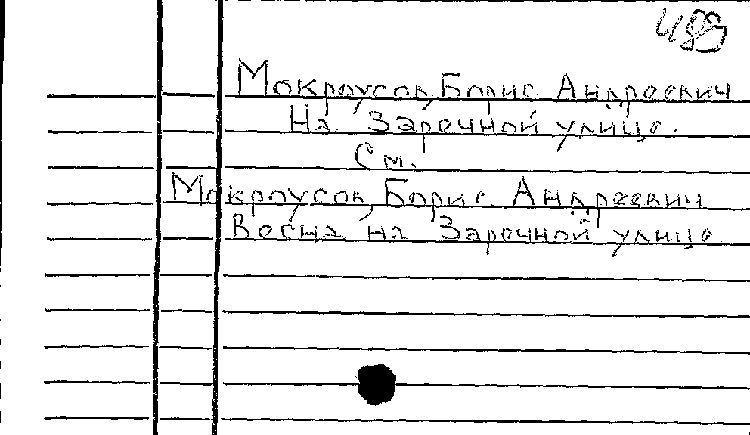 489
Мокроусов, Борис Андреевич
На Заречной улице.
См.
Мокроусов, Борис Андреевич
Весна на Заречной улице